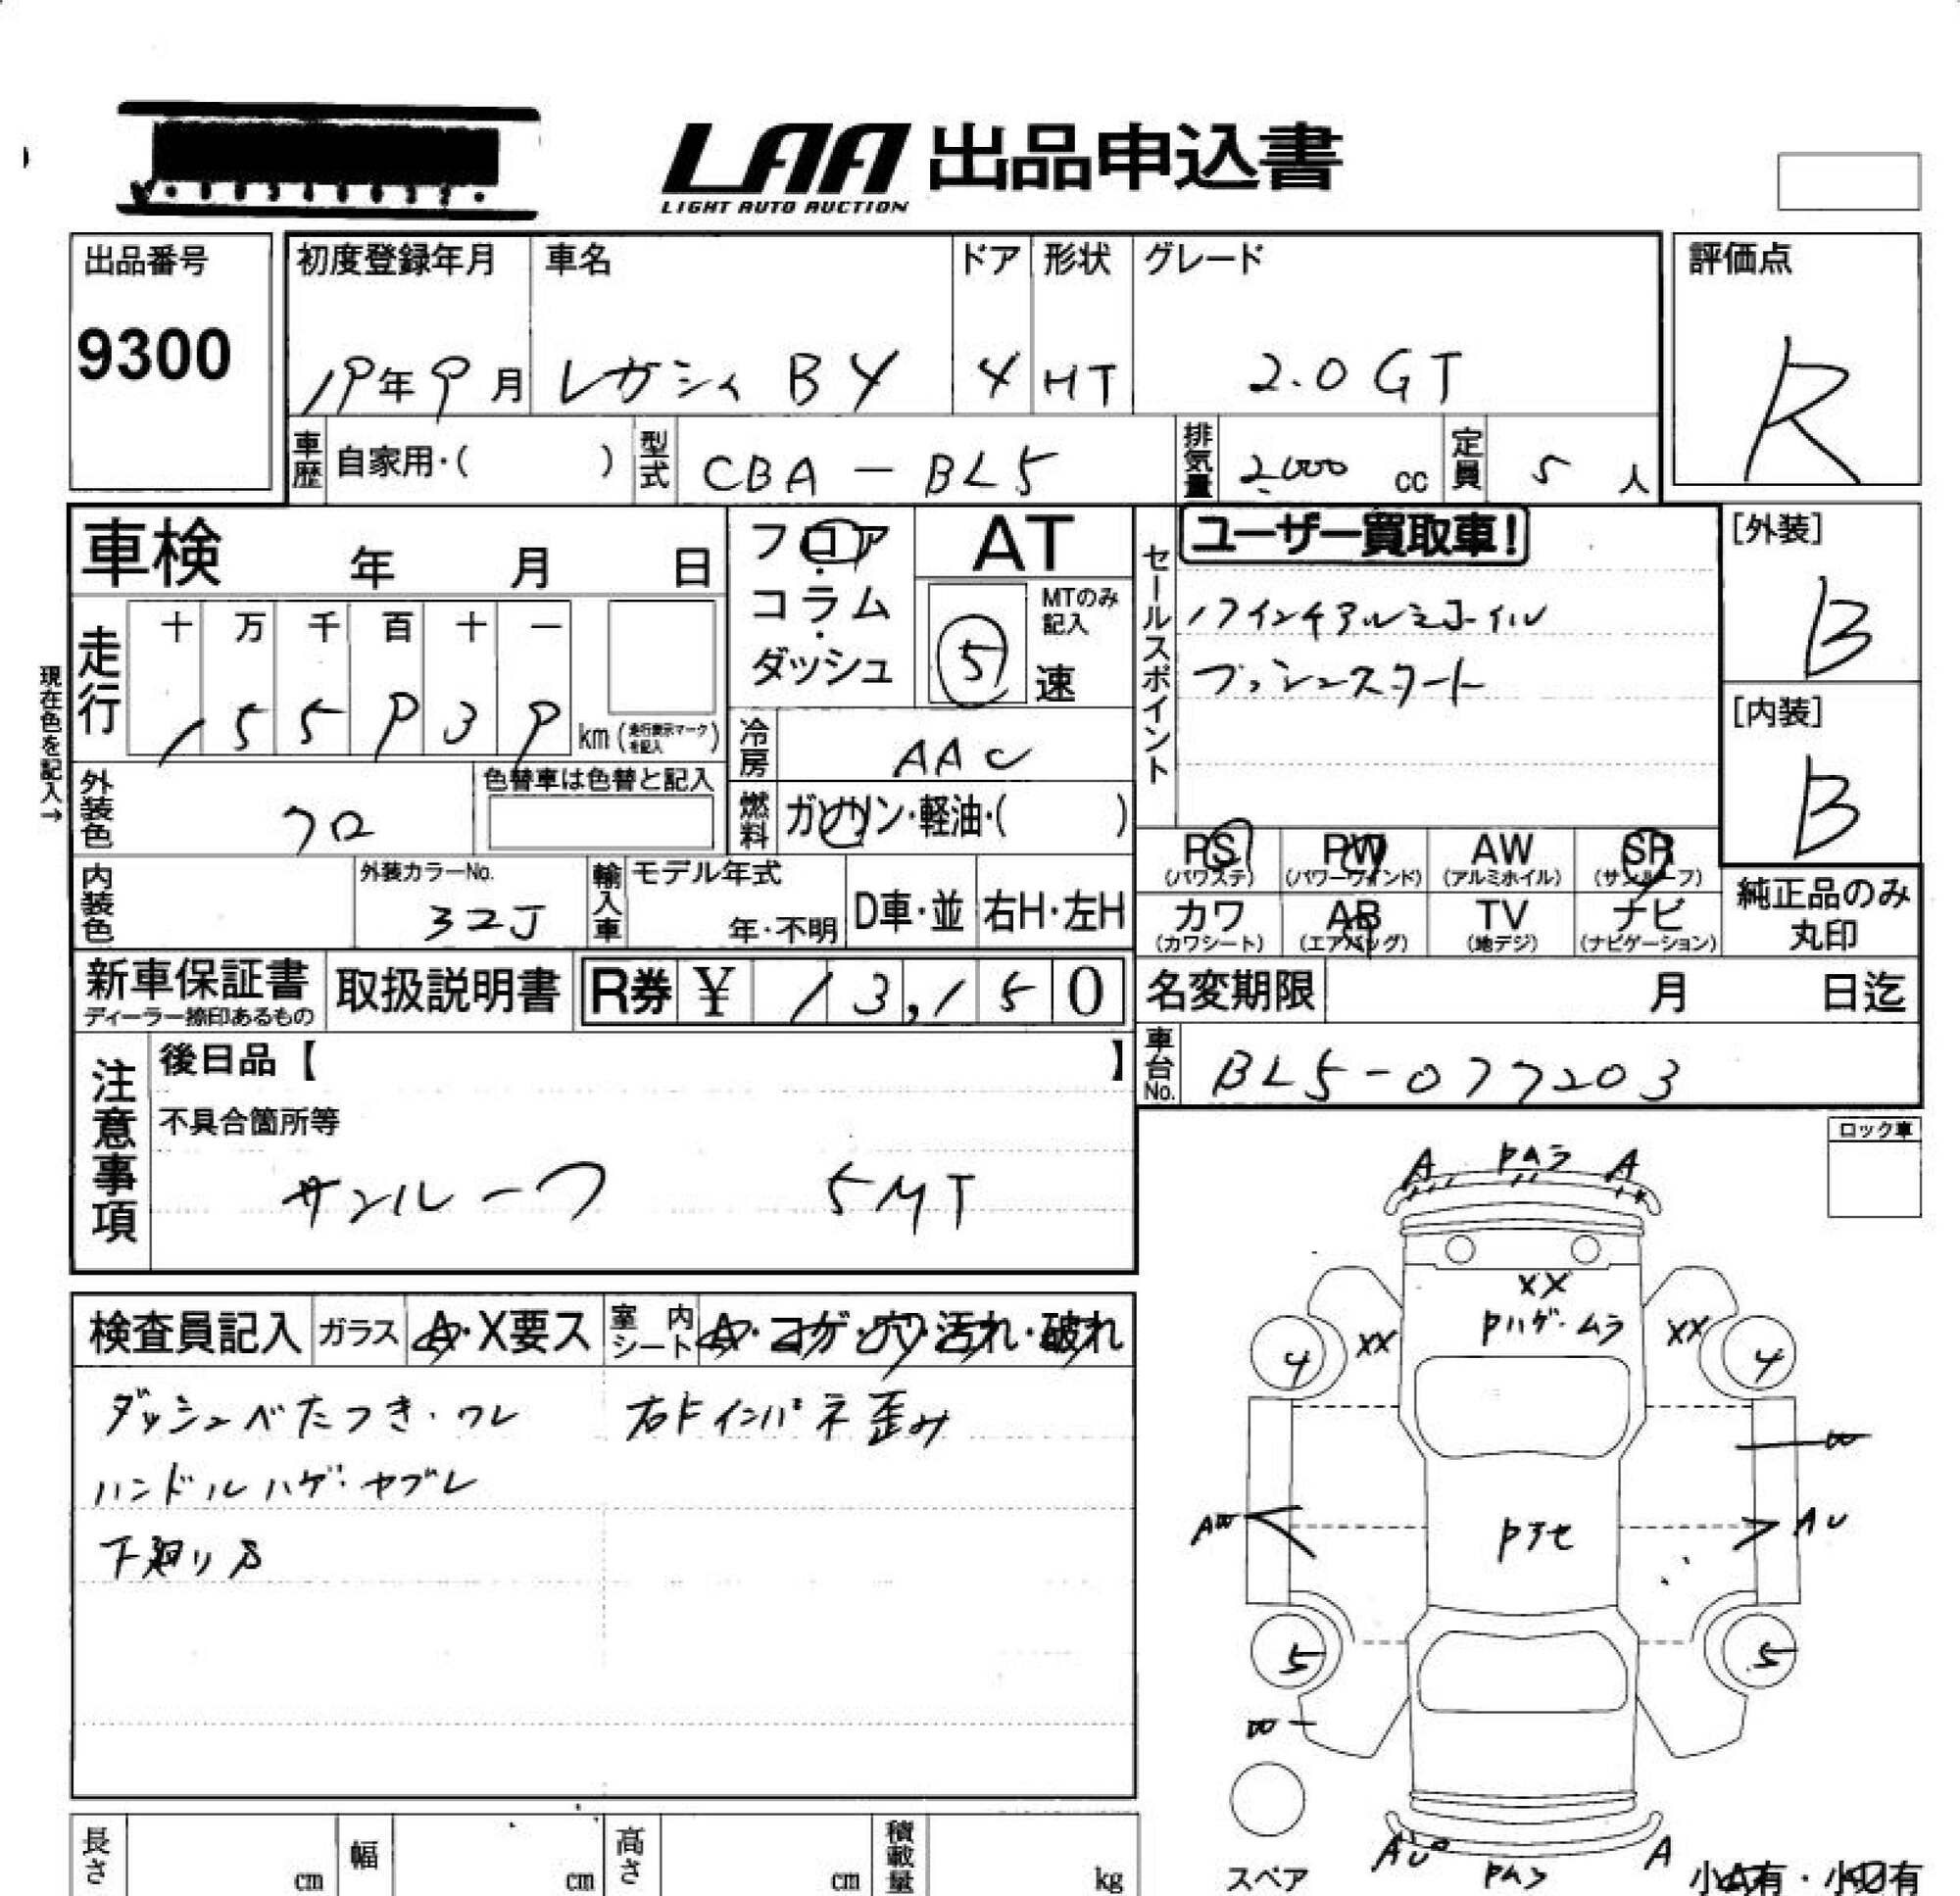 LAA 出品申込書
LIGHT AUTO AUCTION
出品番号
9300
初度登録年月
19年9月
車名
レガシィ B4
ドア
4
形状
HT
グレード
2.0GT
評価点
R
車歴
自家用・( )
型式
CBA-BL5
排気量
2,000 cc
定員
5人
車検 年 月 日
フロア・コラム・ダッシュ
AT
MTのみ記入
5速
セールスポイント
ユーザー買取車!
17インチアルミホイル
プッシュスタート
[外装]
B
[内装]
B
現在色を記入→
走行
十 万 千 百 十 一
1 5 5 9 3 9 km (走行表示マークを記入)
冷房
AAC
外装色
クロ
色替車は色替と記入
燃料
ガソリン・軽油・( )
内装色
外装カラーNo.
32J
輸入車
モデル年式
年・不明
D車・並
右H・左H
PS (パワステ)
PW (パワーウィンド)
AW (アルミホイル)
SR (サンルーフ)
カワ (カワシート)
AB (エアバッグ)
TV (地デジ)
ナビ (ナビゲーション)
純正品のみ丸印
新車保証書
ディーラー捺印あるもの
取扱説明書
R券 ¥ 13,150
名変期限 月 日迄
車台No.
BL5-077203
注意事項
後日品【 】
不具合箇所等
サンルーフ 5MT
ロック車
検査員記入
ガラス
A・X要ス
室内シート
A・コゲ・穴・汚れ・破れ
ダッシュべたつき・ワレ 右Fインパネ歪み
ハンドルハゲ・ヤブレ
下廻りS
A PAラ A
XX
Pハゲ・ムラ
XX XX
4 4
W
AW
Pアセ
AU
5 5
W
AU
PAラ
A
スペア
小A有・小U有
長さ cm
幅 cm
高さ cm
積載量 kg